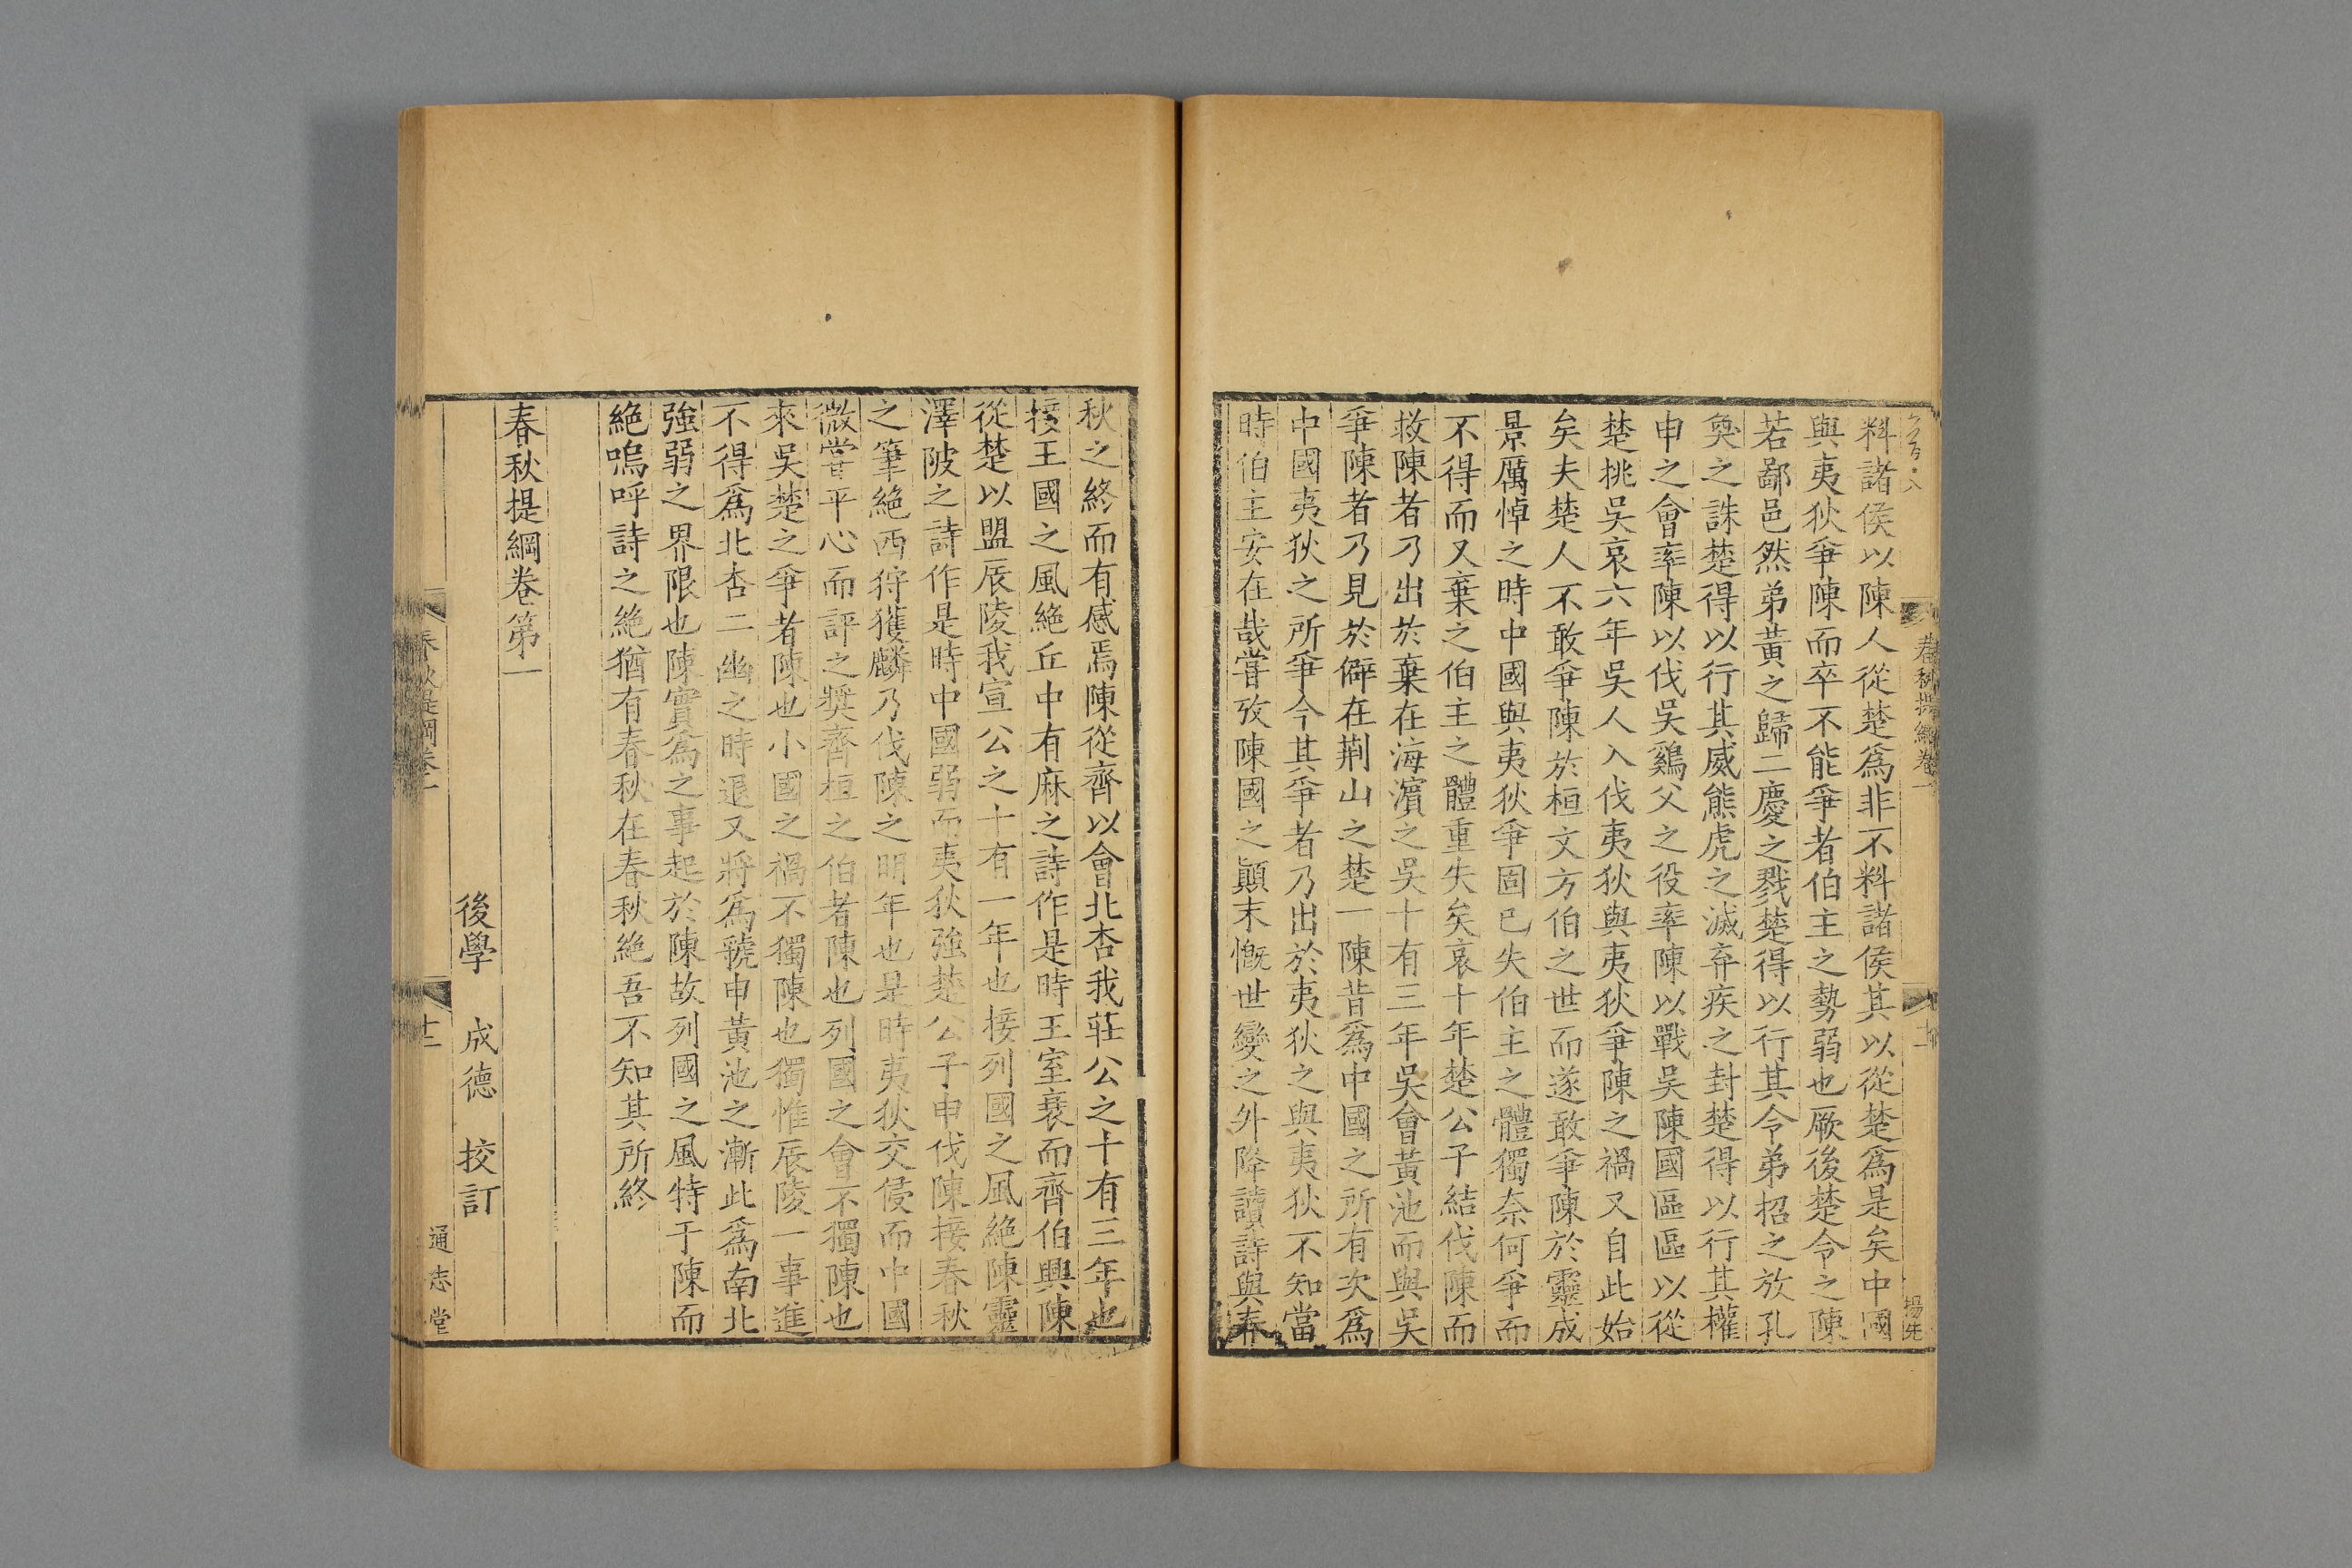 春秋提綱卷一
料諸侯以陳人從楚爲非不料諸侯其以從楚爲是矣中國
與夷狄爭陳而卒不能爭者伯主之勢弱也厥後楚令之陳
若鄙邑然弟黃之歸二慶之戮楚得以行其令弟招之放孔
奐之誅楚得以行其威熊虎之滅弃疾之封楚得以行其權
申之會率陳以伐吳鷄父之役率陳以戰吳陳國區區以從
楚挑吳哀六年吳人入伐夷狄與夷狄爭陳之禍又自此始
矣夫楚人不敢爭陳於桓文方伯之世而遂敢爭陳於靈成
景厲悼之時中國與夷狄爭固已失伯主之體獨奈何爭而
不得而又棄之伯主之體重失矣哀十年楚公子結伐陳而
救陳者乃出於棄在海濵之吳十有三年吳會黃池而與吳
爭陳者乃見於僻在荆山之楚一陳昔爲中國之所有次爲
中國夷狄之所爭今其爭者乃出於夷狄之與夷狄不知當
時伯主安在哉嘗攷陳國之顚末慨世變之外降讀詩與春
秋之終而有感焉陳從齊以會北杏我莊公之十有三年也
接王國之風絶丘中有麻之詩作是時王室衰而齊伯興陳
從楚以盟辰陵我宣公之十有一年也接列國之風絶陳靈
澤陂之詩作是時中國弱而夷狄強楚公子申伐陳接春秋
之筆絶西狩獲麟乃伐陳之明年也是時夷狄交侵而中國
微嘗平心而評之奬齊桓之伯者陳也列國之會不獨陳也
來吳楚之爭者陳也小國之禍不獨陳也獨惟辰陵一事進
不得爲北杏二幽之時退又將爲虢申黃池之漸此爲南北
強弱之界限也陳實爲之事起於陳故列國之風特于陳而
絶嗚呼詩之絶猶有春秋在春秋絶吾不知其所終
春秋提綱卷第一
後學 成德 校訂
春秋提綱卷一
通志堂